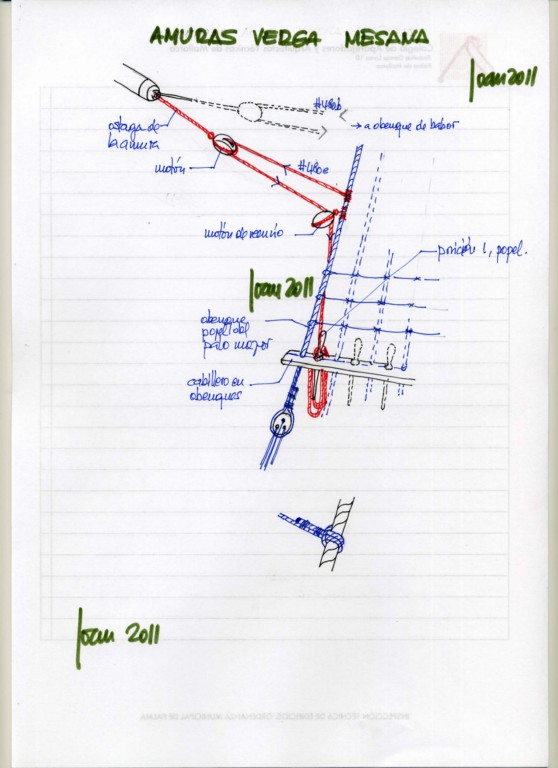 AMURAS VERGA MESANA
Joan 2011
#480b
→ a obenque de babor
ostaga de
la amura
motón
#480e
motón de reenvio
posición 1, popel.
Joan 2011
obenque
popel del
palo mayor
cabillero en
obenques
Joan 2011